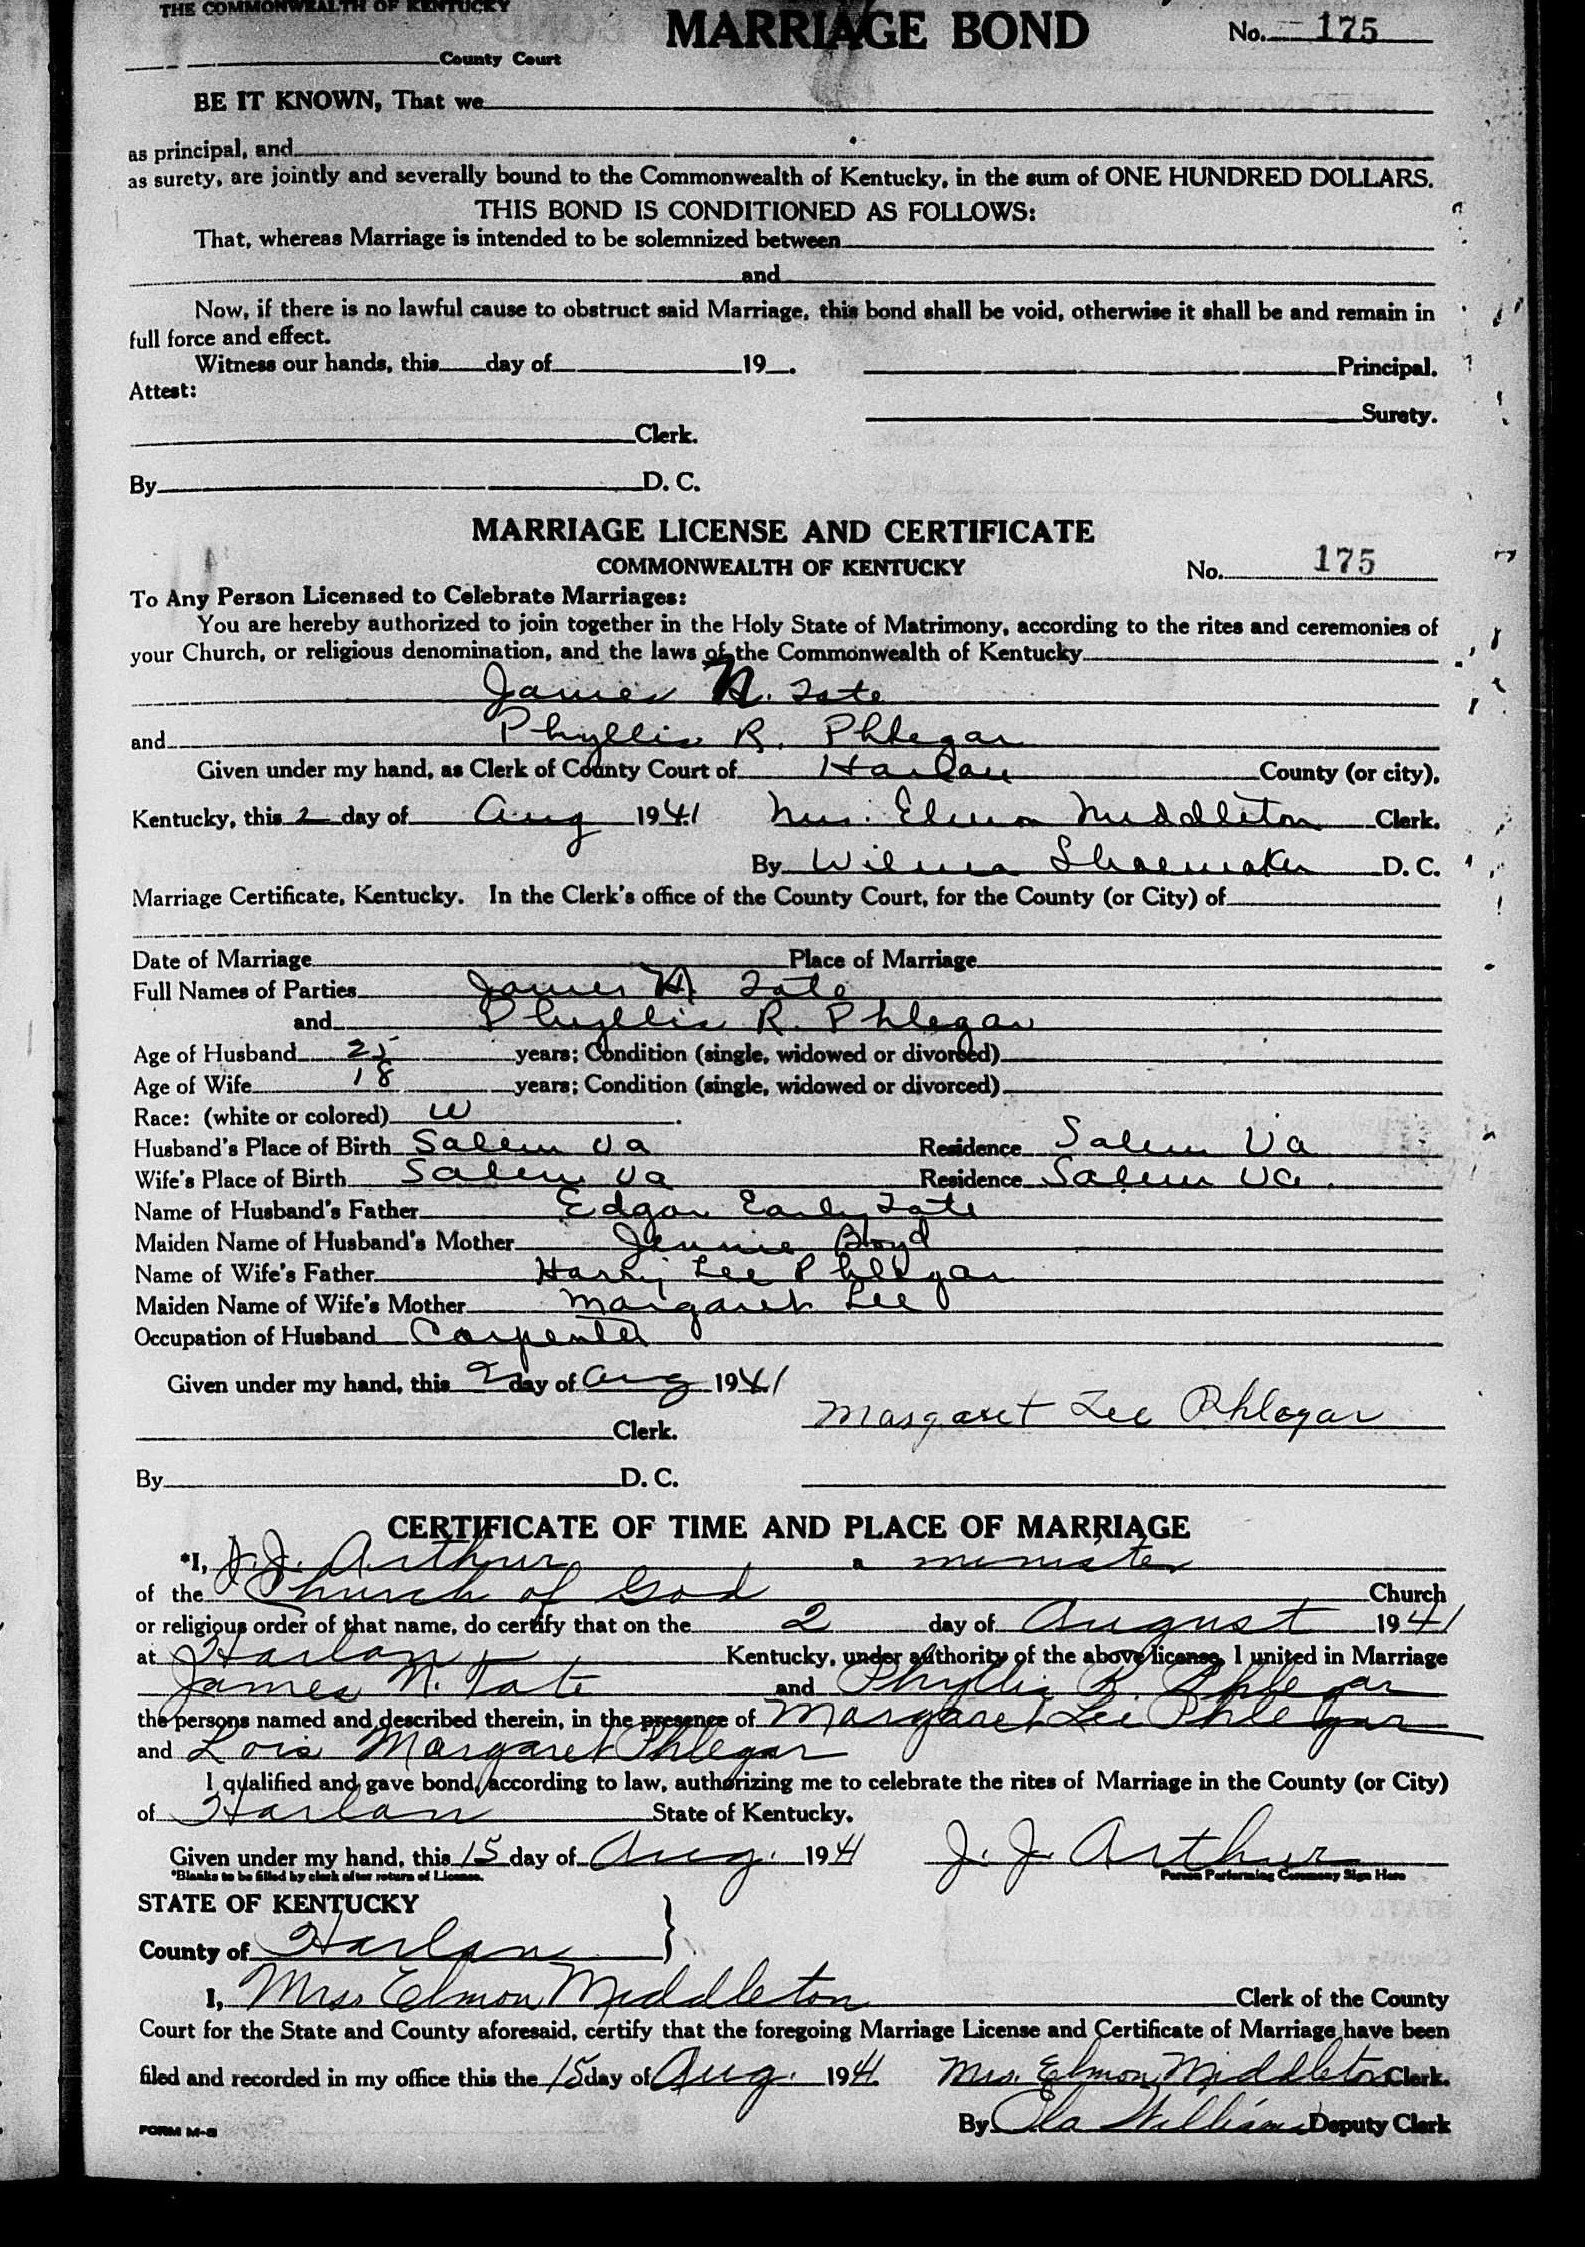 THE COMMONWEALTH OF KENTUCKY
MARRIAGE BOND
No. 175
County Court
BE IT KNOWN, That we
as principal, and
as surety, are jointly and severally bound to the Commonwealth of Kentucky, in the sum of ONE HUNDRED DOLLARS.
THIS BOND IS CONDITIONED AS FOLLOWS:
That, whereas Marriage is intended to be solemnized between
and
Now, if there is no lawful cause to obstruct said Marriage, this bond shall be void, otherwise it shall be and remain in
full force and effect.
Witness our hands, this day of 19 . Principal.
Attest:
Surety.
Clerk.
By D. C.
MARRIAGE LICENSE AND CERTIFICATE
COMMONWEALTH OF KENTUCKY
No. 175
To Any Person Licensed to Celebrate Marriages:
You are hereby authorized to join together in the Holy State of Matrimony, according to the rites and ceremonies of
your Church, or religious denomination, and the laws of the Commonwealth of Kentucky
James N. Tate
and Phyllis R. Phlegar
Given under my hand, as Clerk of County Court of Harlan County (or city),
Kentucky, this 2 day of Aug 1941 Mrs. Elmon Middleton Clerk.
By Wilma Shoemaker D. C.
Marriage Certificate, Kentucky. In the Clerk's office of the County Court, for the County (or City) of
Date of Marriage Place of Marriage
Full Names of Parties James N. Tate
and Phyllis R. Phlegar
Age of Husband 25 years; Condition (single, widowed or divorced)
Age of Wife 18 years; Condition (single, widowed or divorced)
Race: (white or colored) W .
Husband's Place of Birth Salem Va Residence Salem Va
Wife's Place of Birth Salem Va Residence Salem Va.
Name of Husband's Father Edgar Early Tate
Maiden Name of Husband's Mother Jennie Boyd
Name of Wife's Father Harry Lee Phlegar
Maiden Name of Wife's Mother Margaret Lee
Occupation of Husband Carpenter
Given under my hand, this 2 day of Aug 1941
Margaret Lee Phlegar
Clerk.
By D. C.
CERTIFICATE OF TIME AND PLACE OF MARRIAGE
*I, J. J. Arthur a minister
of the Church of God Church
or religious order of that name, do certify that on the 2 day of August 1941
at Harlan Kentucky, under authority of the above license, I united in Marriage
James N. Tate and Phyllis R. Phlegar
the persons named and described therein, in the presence of Margaret Lee Phlegar
and Lois Margaret Phlegar
I qualified and gave bond, according to law, authorizing me to celebrate the rites of Marriage in the County (or City)
of Harlan State of Kentucky.
Given under my hand, this 15 day of Aug. 1941 J. J. Arthur
*Blanks to be filled by clerk after return of License.
Person Performing Ceremony Sign Here
STATE OF KENTUCKY
County of Harlan
I, Mrs Elmon Middleton Clerk of the County
Court for the State and County aforesaid, certify that the foregoing Marriage License and Certificate of Marriage have been
filed and recorded in my office this the 15 day of Aug. 1941 Mrs. Elmon Middleton Clerk.
FORM M-8
By Ola Williams Deputy Clerk